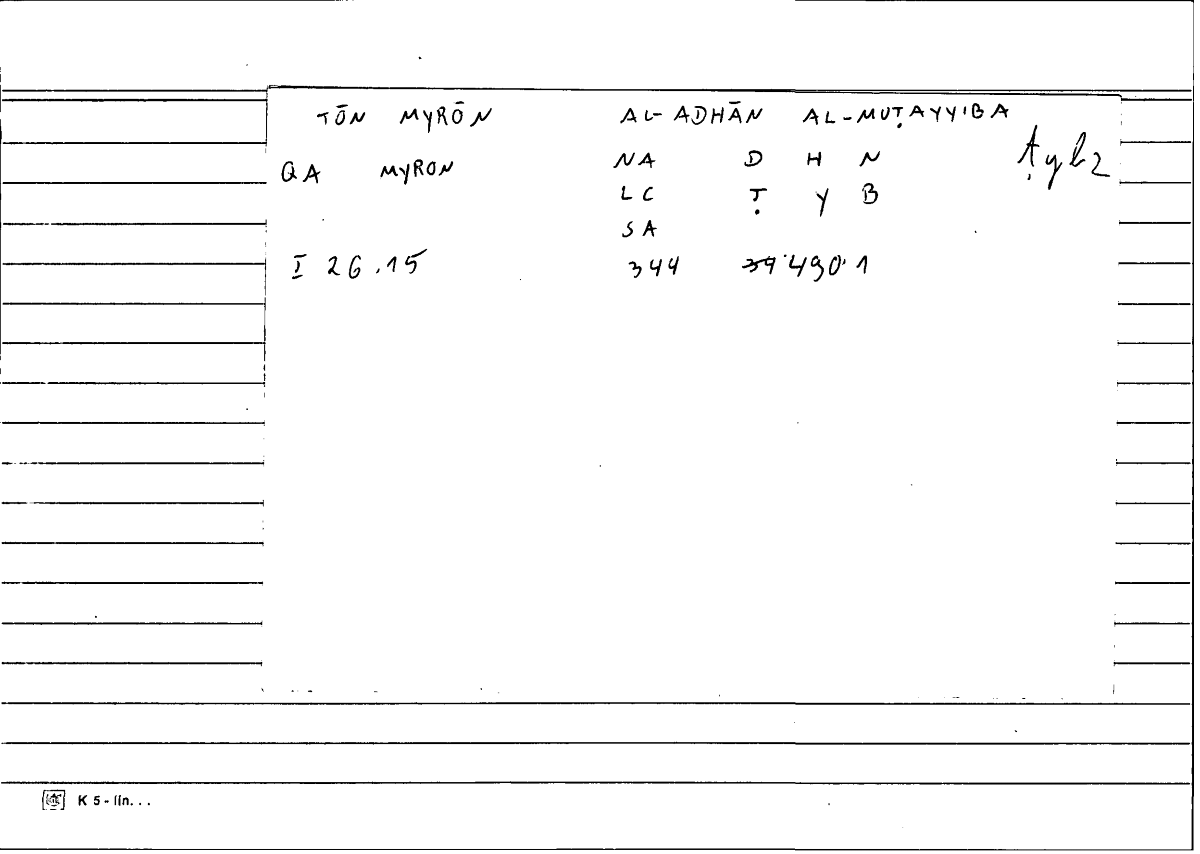 TŌN MYRŌN AL-ADHĀN AL-MUṬAYYIBA
QA MYRON NA D H N Ṭyb2
LC Ṭ Y B
SA
I 26.15 344 39.490.1
K 5 - lín. . .